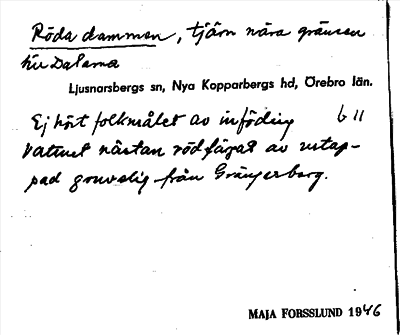 Röda dammen, tjärn nära gränsen
till Dalarna
Ljusnarsbergs sn, Nya Kopparbergs hd, Örebro län.
Ej hört folkmålet av inföding b 11
Vattnet nästan rödfärgat av uttap-
pad gruvslig från Grängesberg.
MAJA FORSSLUND 1946